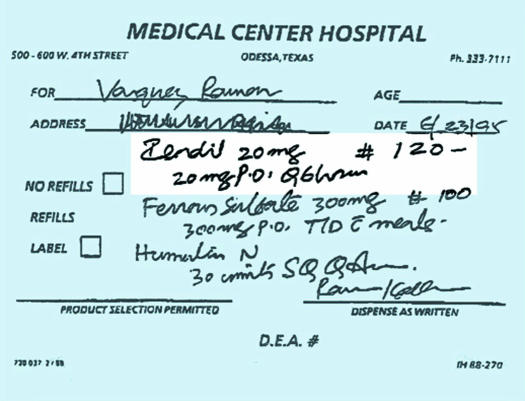 MEDICAL CENTER HOSPITAL
500 - 600 W. 4TH STREET ODESSA, TEXAS Ph. 333-7111
FOR Vasquez, Ramon AGE
ADDRESS DATE 6/23/95
20 mg # 120 -
20 mg P.O. Q6 hours
NO REFILLS
Ferrous Sulfate 300mg # 100
REFILLS
300mg P.O. TID c̄ meals.
LABEL
Humulin N
30 units SQ QAm.
PRODUCT SELECTION PERMITTED DISPENSE AS WRITTEN
D.E.A. #
IH 88-270